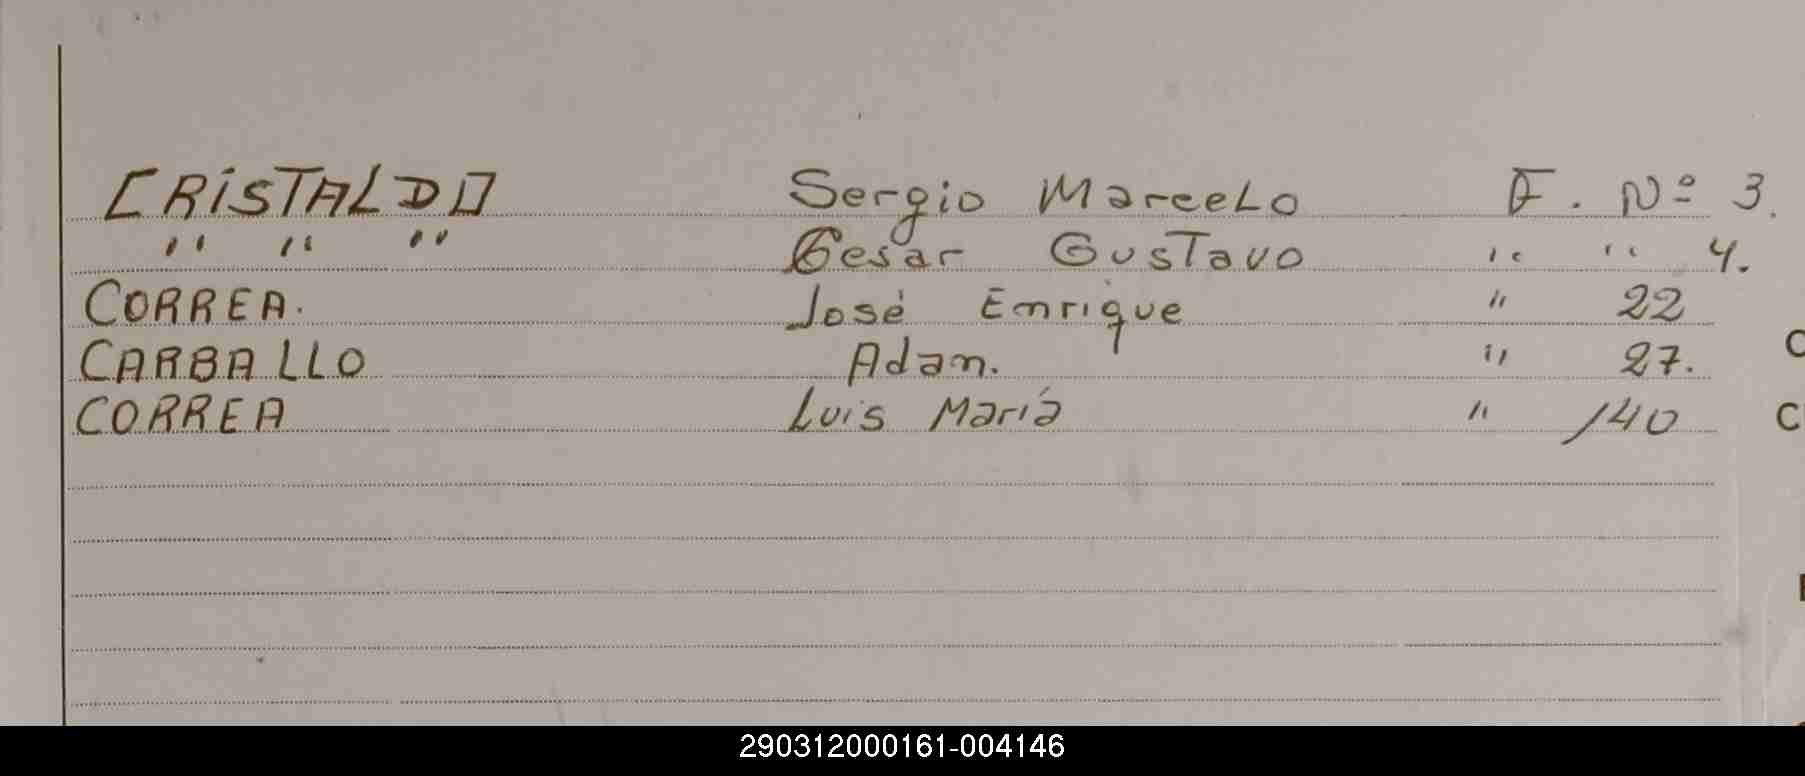 CRISTALDO Sergio Marcelo F. Nº 3.
" " " Cesar Gustavo " " 4.
CORREA. José Enrique " 22
CARBALLO Adan. " 27.
CORREA Luis María " 140
290312000161-004146